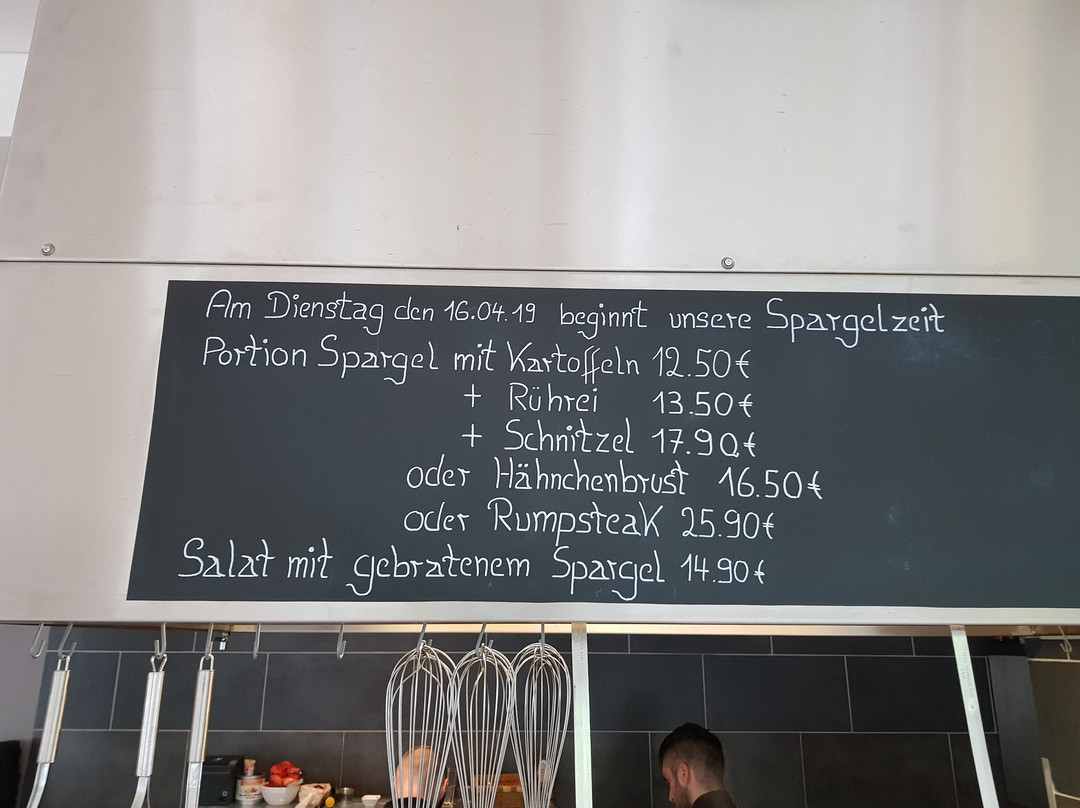 Am Dienstag den 16.04.19 beginnt unsere Spargelzeit
Portion Spargel mit Kartoffeln 12.50€
+ Rührei 13.50€
+ Schnitzel 17.90€
oder Hähnchenbrust 16.50€
oder Rumpsteak 25.90€
Salat mit gebratenem Spargel 14.90€